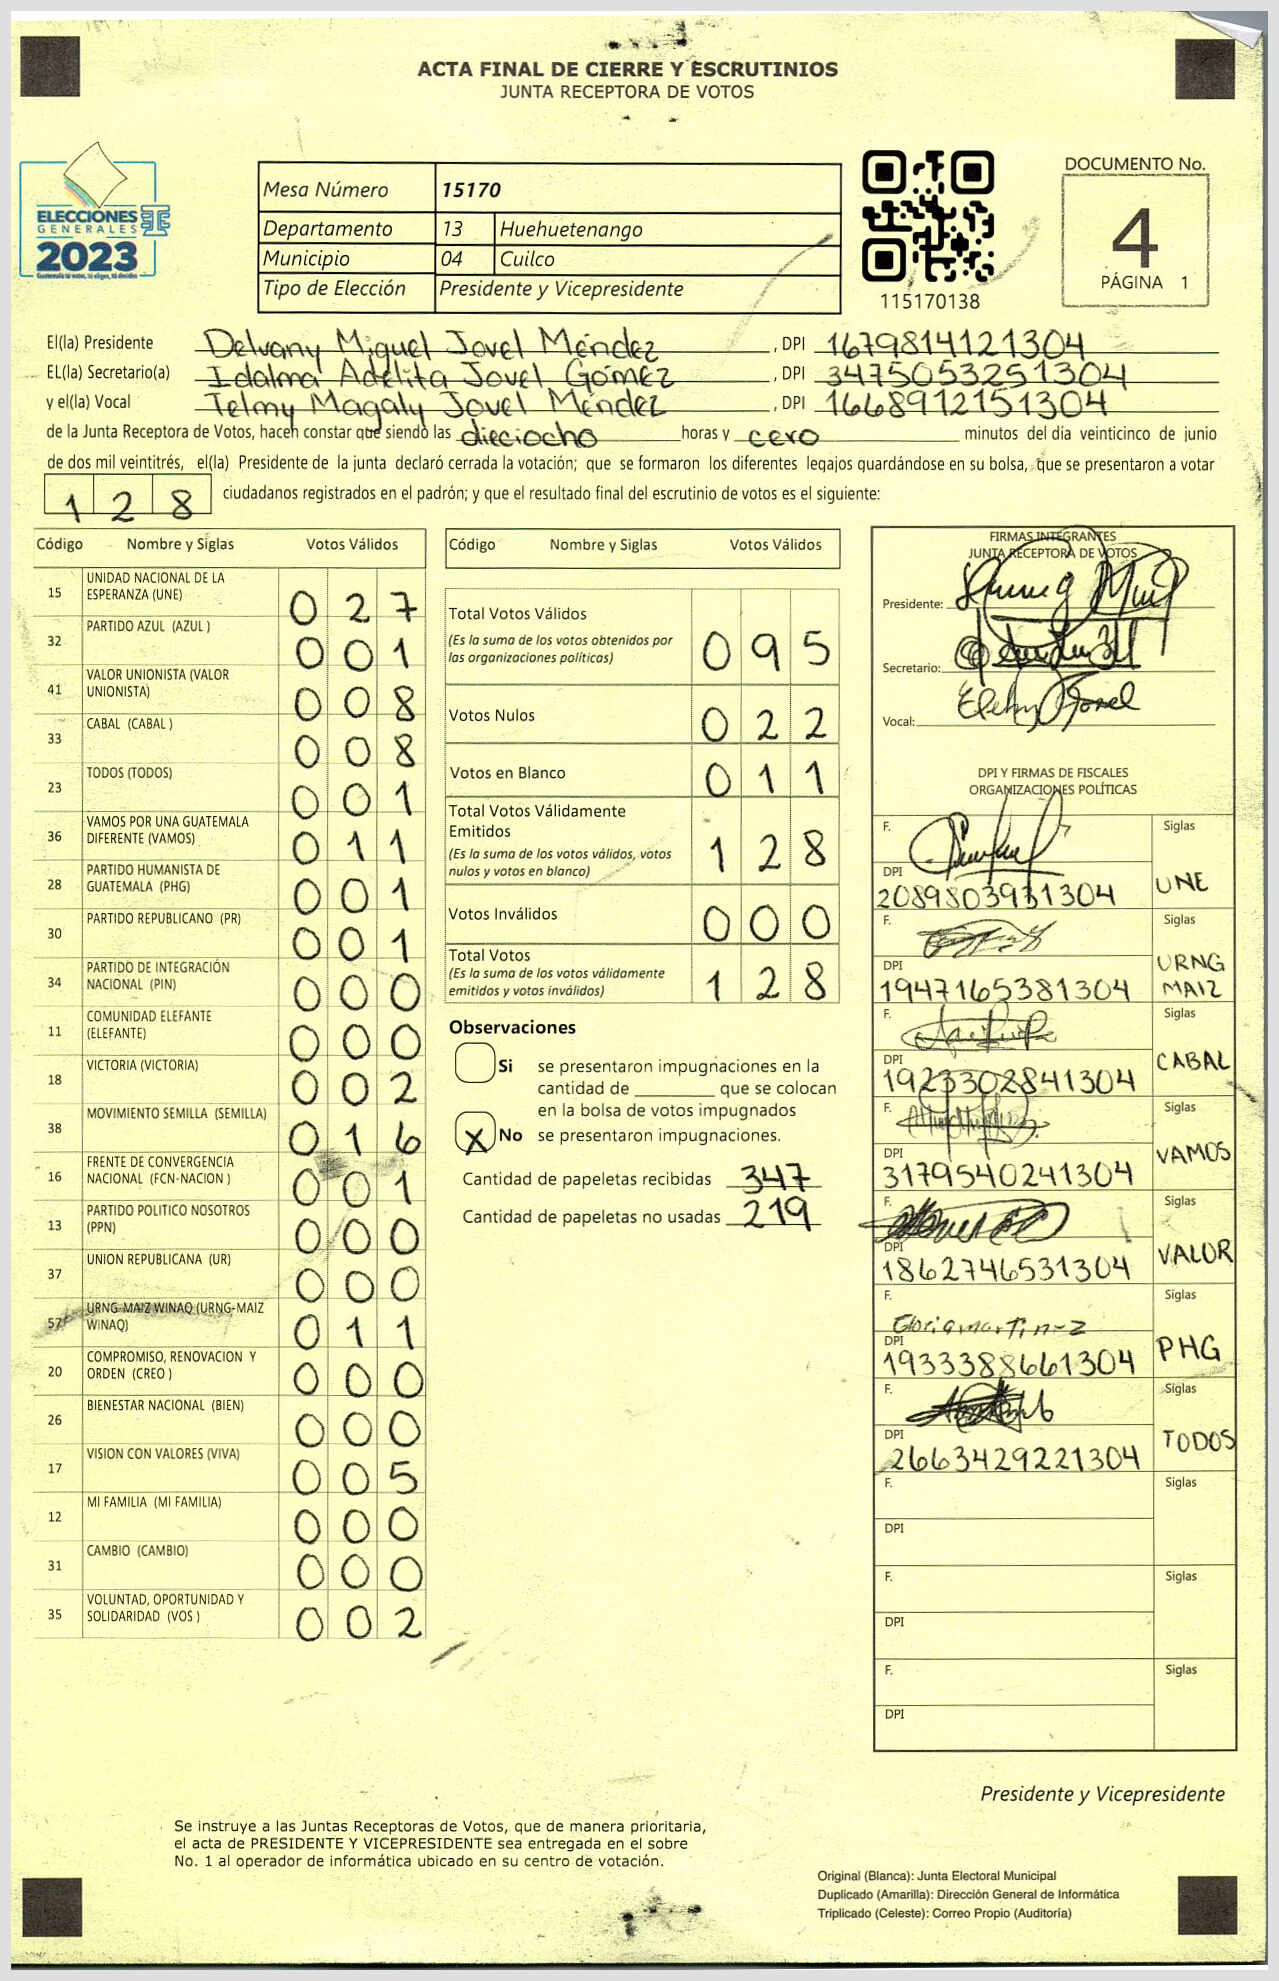 ACTA FINAL DE CIERRE Y ESCRUTINIOS
JUNTA RECEPTORA DE VOTOS
ELECCIONES
GENERALES
2023
Mesa Número 15170
Departamento 13 Huehuetenango
Municipio 04 Cuilco
Tipo de Elección Presidente y Vicepresidente
115170138
DOCUMENTO No.
4
PÁGINA 1
El(la) Presidente Delvany Miguel Jovel Méndez, DPI 1679814121304
EL(la) Secretario(a) Idalma Adelita Jovel Gómez, DPI 3475053251304
y el(la) Vocal Telmy Magaly Jovel Méndez, DPI 1668912151304
de la Junta Receptora de Votos, hacen constar que siendo las dieciocho horas y cero minutos del día veinticinco de junio
de dos mil veintitrés, el(la) Presidente de la junta declaró cerrada la votación; que se formaron los diferentes legajos guardándose en su bolsa, que se presentaron a votar
128 ciudadanos registrados en el padrón; y que el resultado final del escrutinio de votos es el siguiente:
Código Nombre y Siglas Votos Válidos
15 UNIDAD NACIONAL DE LA ESPERANZA (UNE) 027
32 PARTIDO AZUL (AZUL ) 001
41 VALOR UNIONISTA (VALOR UNIONISTA) 008
33 CABAL (CABAL ) 008
23 TODOS (TODOS) 001
36 VAMOS POR UNA GUATEMALA DIFERENTE (VAMOS) 011
28 PARTIDO HUMANISTA DE GUATEMALA (PHG) 001
30 PARTIDO REPUBLICANO (PR) 001
34 PARTIDO DE INTEGRACIÓN NACIONAL (PIN) 000
11 COMUNIDAD ELEFANTE (ELEFANTE) 000
18 VICTORIA (VICTORIA) 002
38 MOVIMIENTO SEMILLA (SEMILLA) 016
16 FRENTE DE CONVERGENCIA NACIONAL (FCN-NACION ) 001
13 PARTIDO POLITICO NOSOTROS (PPN) 000
37 UNION REPUBLICANA (UR) 000
57 URNG-MAIZ WINAQ (URNG-MAIZ WINAQ) 011
20 COMPROMISO, RENOVACION Y ORDEN (CREO ) 000
26 BIENESTAR NACIONAL (BIEN) 000
17 VISION CON VALORES (VIVA) 005
12 MI FAMILIA (MI FAMILIA) 000
31 CAMBIO (CAMBIO) 000
35 VOLUNTAD, OPORTUNIDAD Y SOLIDARIDAD (VOS ) 002
Código Nombre y Siglas Votos Válidos
Total Votos Válidos 095
(Es la suma de los votos obtenidos por las organizaciones políticas)
Votos Nulos 022
Votos en Blanco 011
Total Votos Válidamente Emitidos 128
(Es la suma de los votos válidos, votos nulos y votos en blanco)
Votos Inválidos 000
Total Votos 128
(Es la suma de los votos válidamente emitidos y votos inválidos)
Observaciones
Si se presentaron impugnaciones en la
cantidad de ________ que se colocan
en la bolsa de votos impugnados
X No se presentaron impugnaciones.
Cantidad de papeletas recibidas 347
Cantidad de papeletas no usadas 219
FIRMAS INTEGRANTES
JUNTA RECEPTORA DE VOTOS
Presidente:
Secretario:
Vocal:
DPI Y FIRMAS DE FISCALES
ORGANIZACIONES POLÍTICAS
F. Siglas
DPI 2089803931304 UNE
F. Siglas
DPI 1947165381304 URNG MAIZ
F. Siglas
DPI 1923302841304 CABAL
F. Siglas
DPI 3179540241304 VAMOS
F. Siglas
DPI 1862746531304 VALOR
F. Gloria Martínez Siglas
DPI 1933388661304 PHG
F. Siglas
DPI 2663429221304 TODOS
F. Siglas
DPI
F. Siglas
DPI
F. Siglas
DPI
Presidente y Vicepresidente
Se instruye a las Juntas Receptoras de Votos, que de manera prioritaria,
el acta de PRESIDENTE Y VICEPRESIDENTE sea entregada en el sobre
No. 1 al operador de informática ubicado en su centro de votación.
Original (Blanca): Junta Electoral Municipal
Duplicado (Amarilla): Dirección General de Informática
Triplicado (Celeste): Correo Propio (Auditoría)